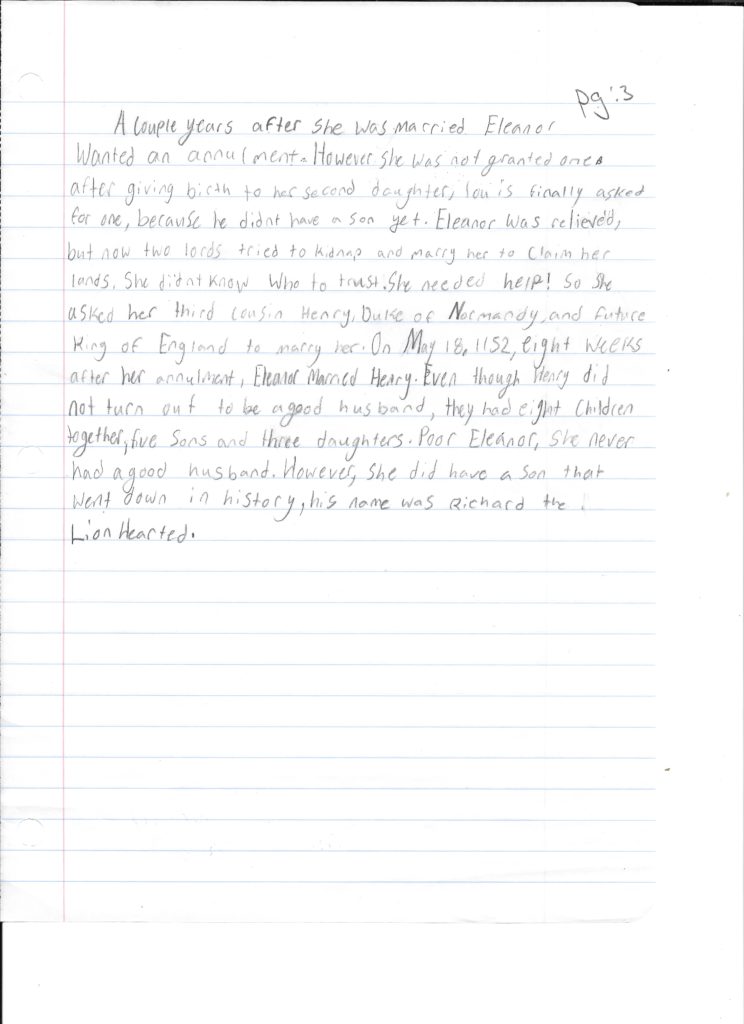 pg:3
A couple years after she was married Eleanor
Wanted an annulment. However she was not granted one.
after giving birth to her second daughter, Louis finally asked
for one, because he didnt have a son yet. Eleanor was relieved,
but now two lords tried to kidnap and marry her to claim her
lands. She didnt know who to trust. She needed help! So she
asked her third cousin Henry, Duke of Normandy, and future
King of England to marry her. On May 18, 1152, eight weeks
after her annulment, Eleanor Married Henry. Even though Henry did
not turn out to be a good husband, they had eight children
together, five sons and three daughters. Poor Eleanor, she never
had a good husband. However, she did have a son that
went down in history, his name was Richard the
Lion Hearted.